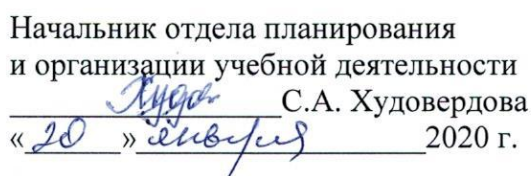 Начальник отдела планирования
и организации учебной деятельности
Худов С.А. Худовердова
«20» января 2020 г.